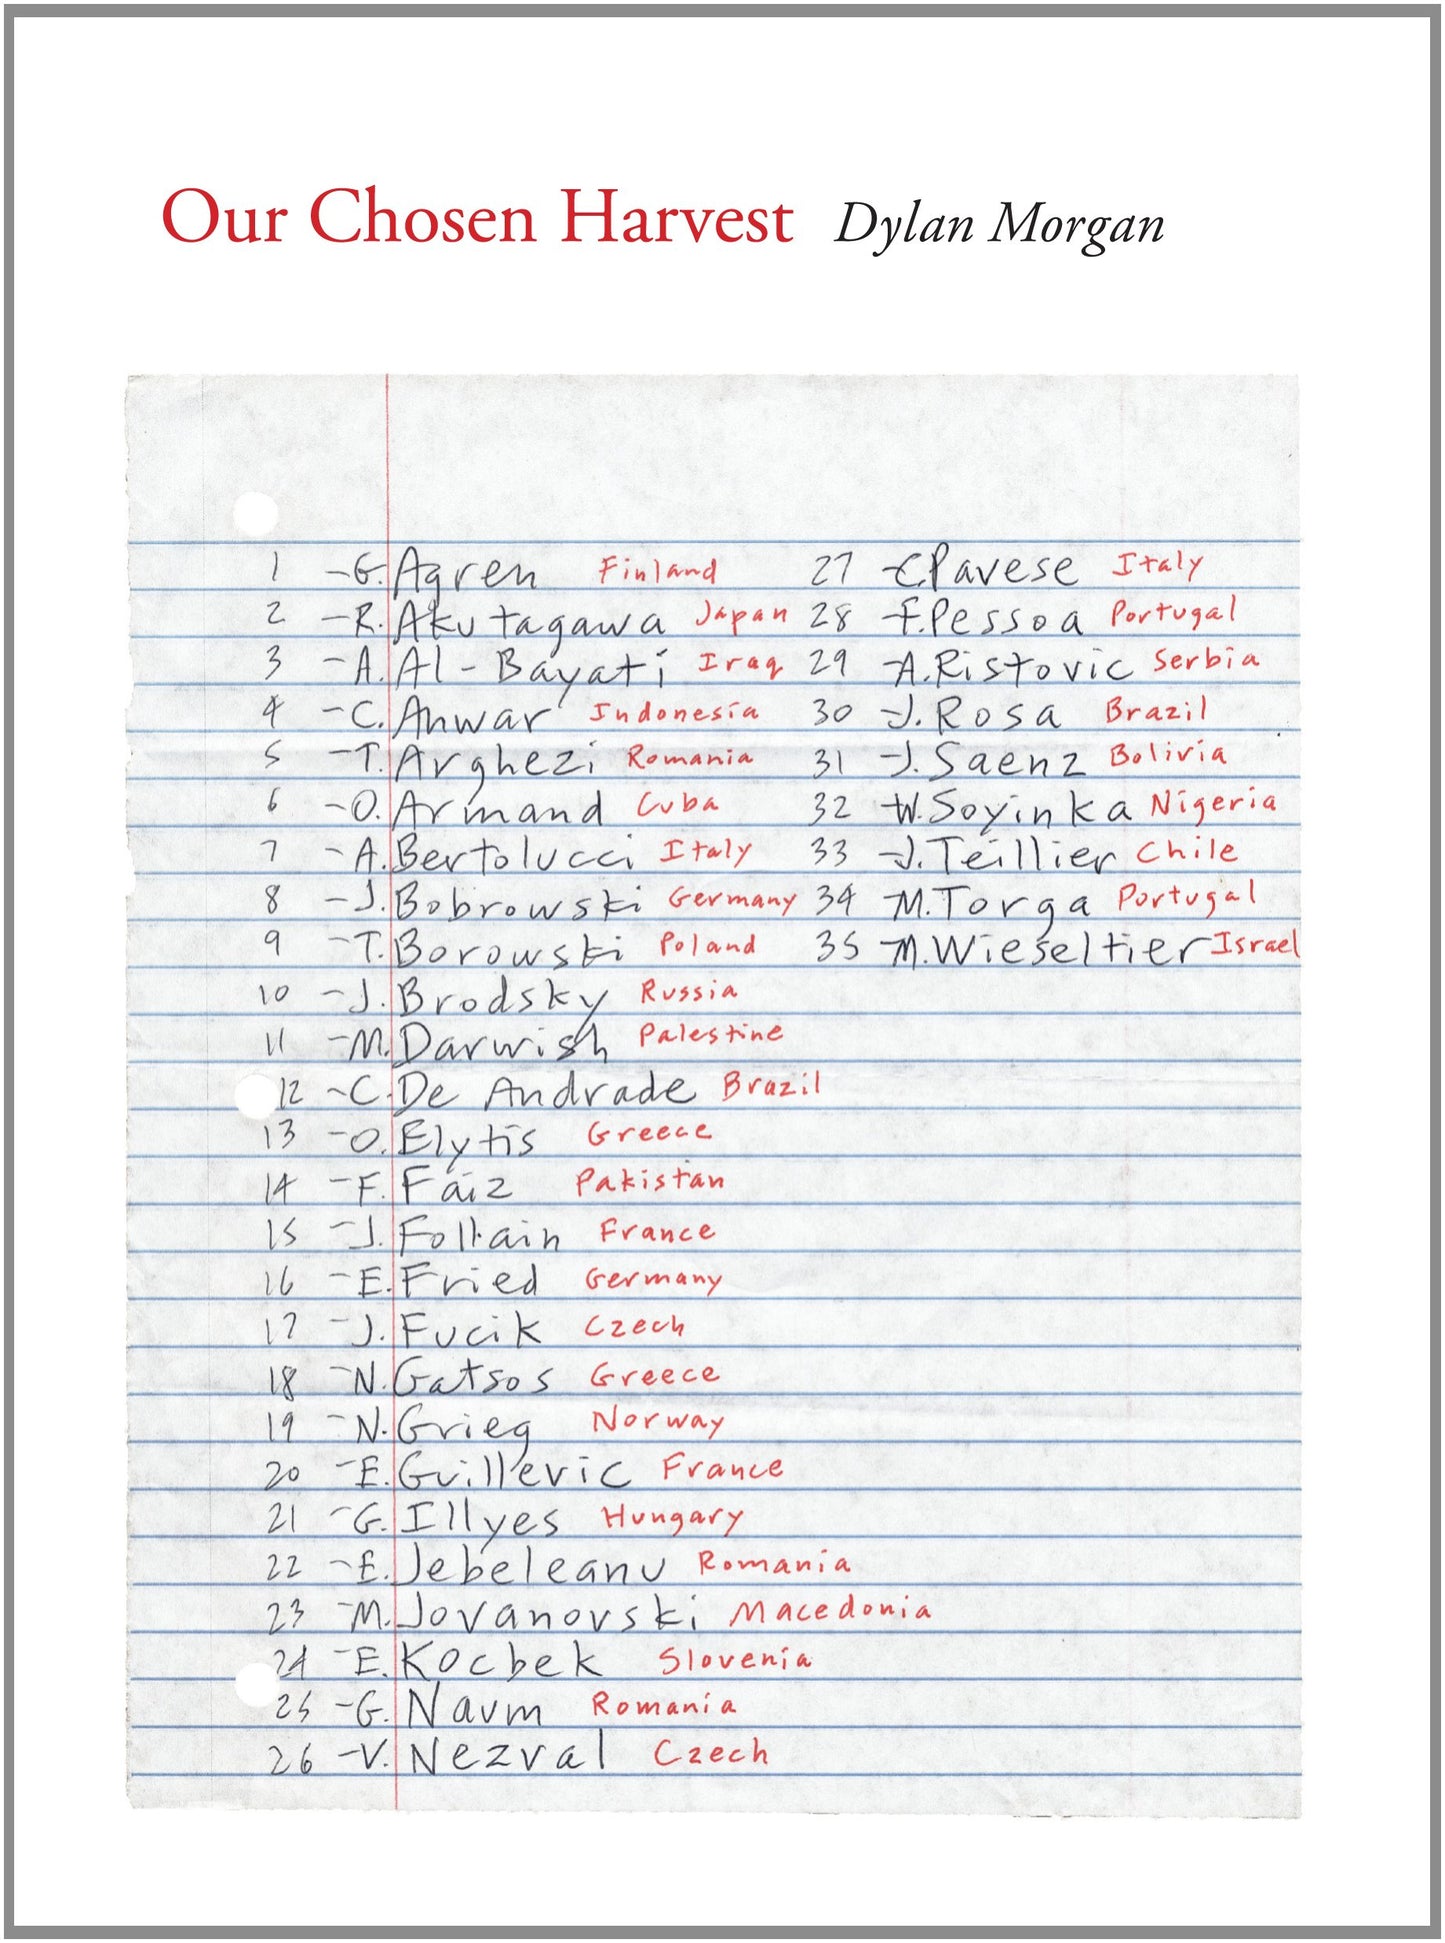 Our Chosen Harvest Dylan Morgan
1 -G. Agren Finland
2 -R. Akutagawa Japan
3 -A. Al-Bayati Iraq
4 -C. Anwar Indonesia
5 -T. Arghezi Romania
6 -O. Armand Cuba
7 -A. Bertolucci Italy
8 -J. Bobrowski Germany
9 -T. Borowski Poland
10 -J. Brodsky Russia
11 -M. Darwish Palestine
12 -C. De Andrade Brazil
13 -O. Elytis Greece
14 -F. Faiz Pakistan
15 -J. Follain France
16 -E. Fried Germany
17 -J. Fucik Czech
18 -N. Gatsos Greece
19 -N. Grieg Norway
20 -E. Guillevic France
21 -G. Illyes Hungary
22 -E. Jebeleanu Romania
23 -M. Jovanovski Macedonia
24 -E. Kocbek Slovenia
25 -G. Naum Romania
26 -V. Nezval Czech
27 -C. Pavese Italy
28 -F. Pessoa Portugal
29 -A. Ristovic Serbia
30 -J. Rosa Brazil
31 -J. Saenz Bolivia
32 -W. Soyinka Nigeria
33 -J. Teillier Chile
34 -M. Torga Portugal
35 -M. Wieseltier Israel